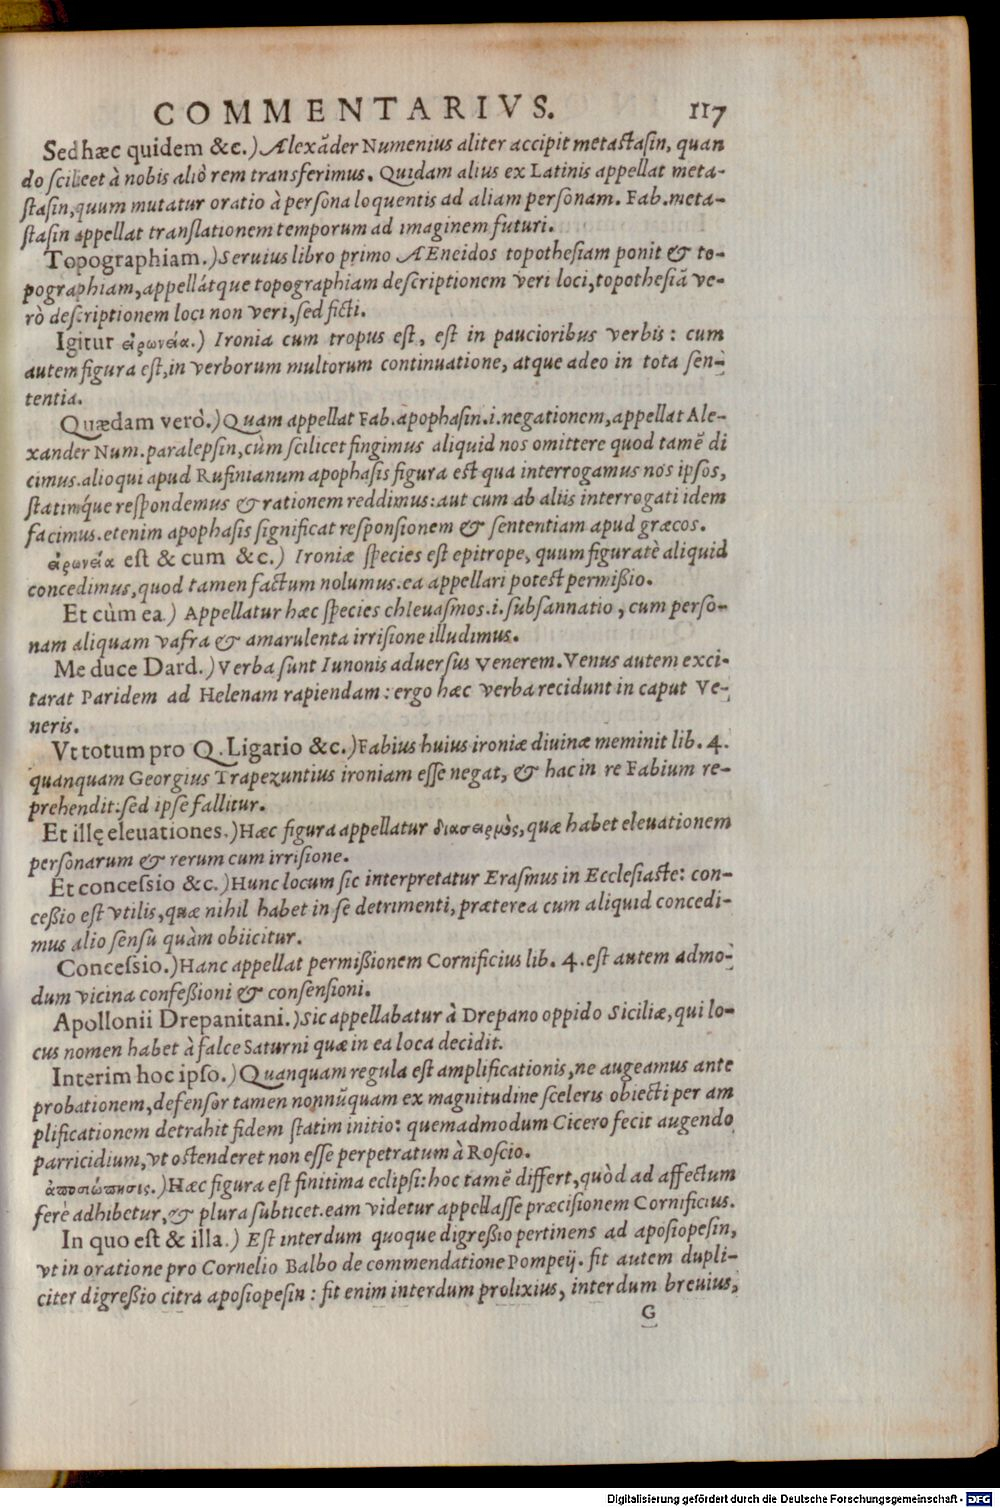 COMMENTARIVS. 117
Sed hæc quidem &c.) Alexāder Numenius aliter accipit metastasin, quan
do scilicet à nobis aliò rem transferimus. Quidam alius ex Latinis appellat meta-
stasin, quum mutatur oratio à persona loquentis ad aliam personam. Fab. meta-
stasin appellat translationem temporum ad imaginem futuri.
Topographiam.) Seruius libro primo AEneidos topothesiam ponit & to-
pographiam, appellátque topographiam descriptionem veri loci, topothesiā ve-
rò descriptionem loci non veri, sed ficti.
Igitur εἰρωνεία.) Ironia cum tropus est, est in paucioribus verbis: cum
autem figura est, in verborum multorum continuatione, atque adeo in tota sen-
tentia.
Quædam verò.) Quam appellat Fab. apophasin .i. negationem, appellat Ale-
xander Num. paralepsin, cùm scilicet fingimus aliquid nos omittere quod tamē di
cimus. alioqui apud Rufinianum apophasis figura est qua interrogamus nos ipsos,
statimq́ue respondemus & rationem reddimus: aut cum ab aliis interrogati idem
facimus. etenim apophasis significat responsionem & sententiam apud græcos.
εἰρωνεία est & cum &c.) Ironiæ species est epitrope, quum figuratè aliquid
concedimus, quod tamen factum nolumus. ea appellari potest permißio.
Et cùm ea.) Appellatur hæc species chleuasmos .i. subsannatio, cum perso-
nam aliquam vafra & amarulenta irrisione illudimus.
Me duce Dard.) Verba sunt Iunonis aduersus Venerem. Venus autem exci-
tarat Paridem ad Helenam rapiendam: ergo hæc verba recidunt in caput Ve-
neris.
Vt totum pro Q. Ligario &c.) Fabius huius ironiæ diuinæ meminit lib. 4.
quanquam Georgius Trapezuntius ironiam esse negat, & hac in re Fabium re-
prehendit: sed ipse fallitur.
Et illę eleuationes.) Hæc figura appellatur διασυρμὸς, quæ habet eleuationem
personarum & rerum cum irrisione.
Et concessio &c.) Hunc locum sic interpretatur Erasmus in Ecclesiaste: con-
ceßio est vtilis, quæ nihil habet in se detrimenti, præterea cum aliquid concedi-
mus alio sensu quàm obiicitur.
Concessio.) Hanc appellat permißionem Cornificius lib. 4. est autem admo-
dum vicina confeßioni & consensioni.
Apollonii Drepanitani.) Sic appellabatur à Drepano oppido Siciliæ, qui lo-
cus nomen habet à falce Saturni quæ in ea loca decidit.
Interim hoc ipso.) Quanquam regula est amplificationis, ne augeamus ante
probationem, defensor tamen nonnūquam ex magnitudine sceleris obiecti per am
plificationem detrahit fidem statim initio: quemadmodum Cicero fecit augendo
parricidium, vt ostenderet non esse perpetratum à Roscio.
ἀποσιώπησις.) Hæc figura est finitima eclipsi: hoc tamē differt, quòd ad affectum
ferè adhibetur, & plura subticet. eam videtur appellasse præcisionem Cornificius.
In quo est & illa.) Est interdum quoque digreßio pertinens ad aposiopesin,
vt in oratione pro Cornelio Balbo de commendatione Pompeij. fit autem dupli-
citer digreßio citra aposiopesin: fit enim interdum prolixius, interdum breuius,
G
Digitalisierung gefördert durch die Deutsche Forschungsgemeinschaft - DFG